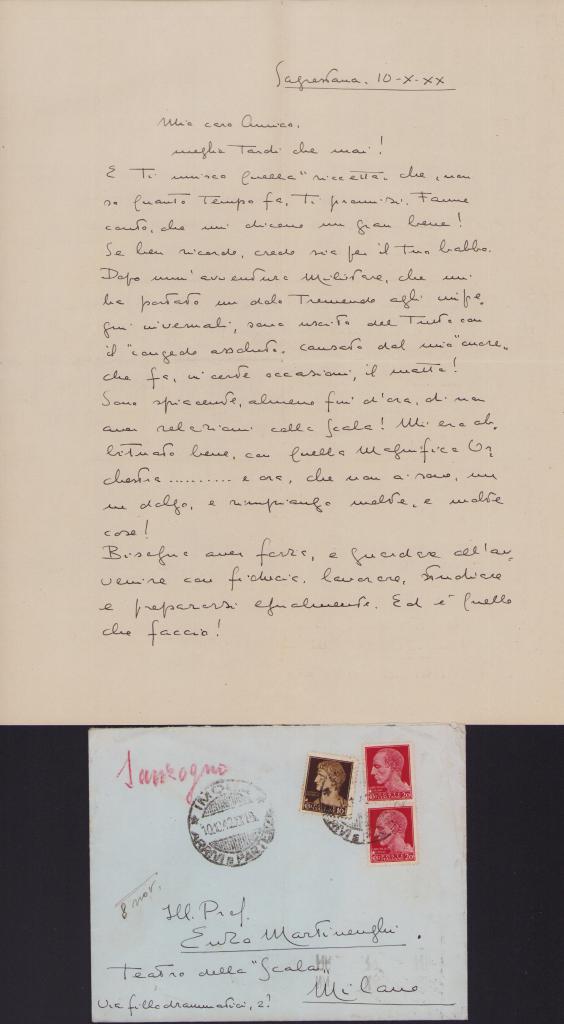 Sagrestana. 10-X-XX
Mio caro Amico,
meglio Tardi che mai!
E Ti unisco quella "riccetta" che, non
so quanto Tempo fa, Ti promisi. Fanne
conto, che mi dicono un gran bene!
Se ben ricordo, credo sia per il Tuo babbo.
Dopo un'avventura Militare, che mi
ha portato un dolo Tremendo agli impe,
gni invernali, sono uscito del Tutto con
il "congedo assoluto", causato dal mio "cuore",
che fa, in certe occasioni, il matto!
Sono spiacente, almeno fin d'ora, di non
aver relazioni colla Scala! Mi ero ab,
bituato bene, con quella Magnifica Or
chestra ......... e ora, che non ci sono, me
ne dolgo, e rimpiango molte, e molte
cose!
Bisogna aver forza, e guardare all'av,
venire con fiducia, lavorare, studiare
e prepararsi egualmente. Ed è quello
che faccio!
Sanzogno
IMOLA
10.10.42.XX
ARRIVI E PARTENZE
8 nov.
Ill. Prof.
Enzo Martinenghi.
Teatro della "Scala"
Milano
Via filodrammatici, 2?